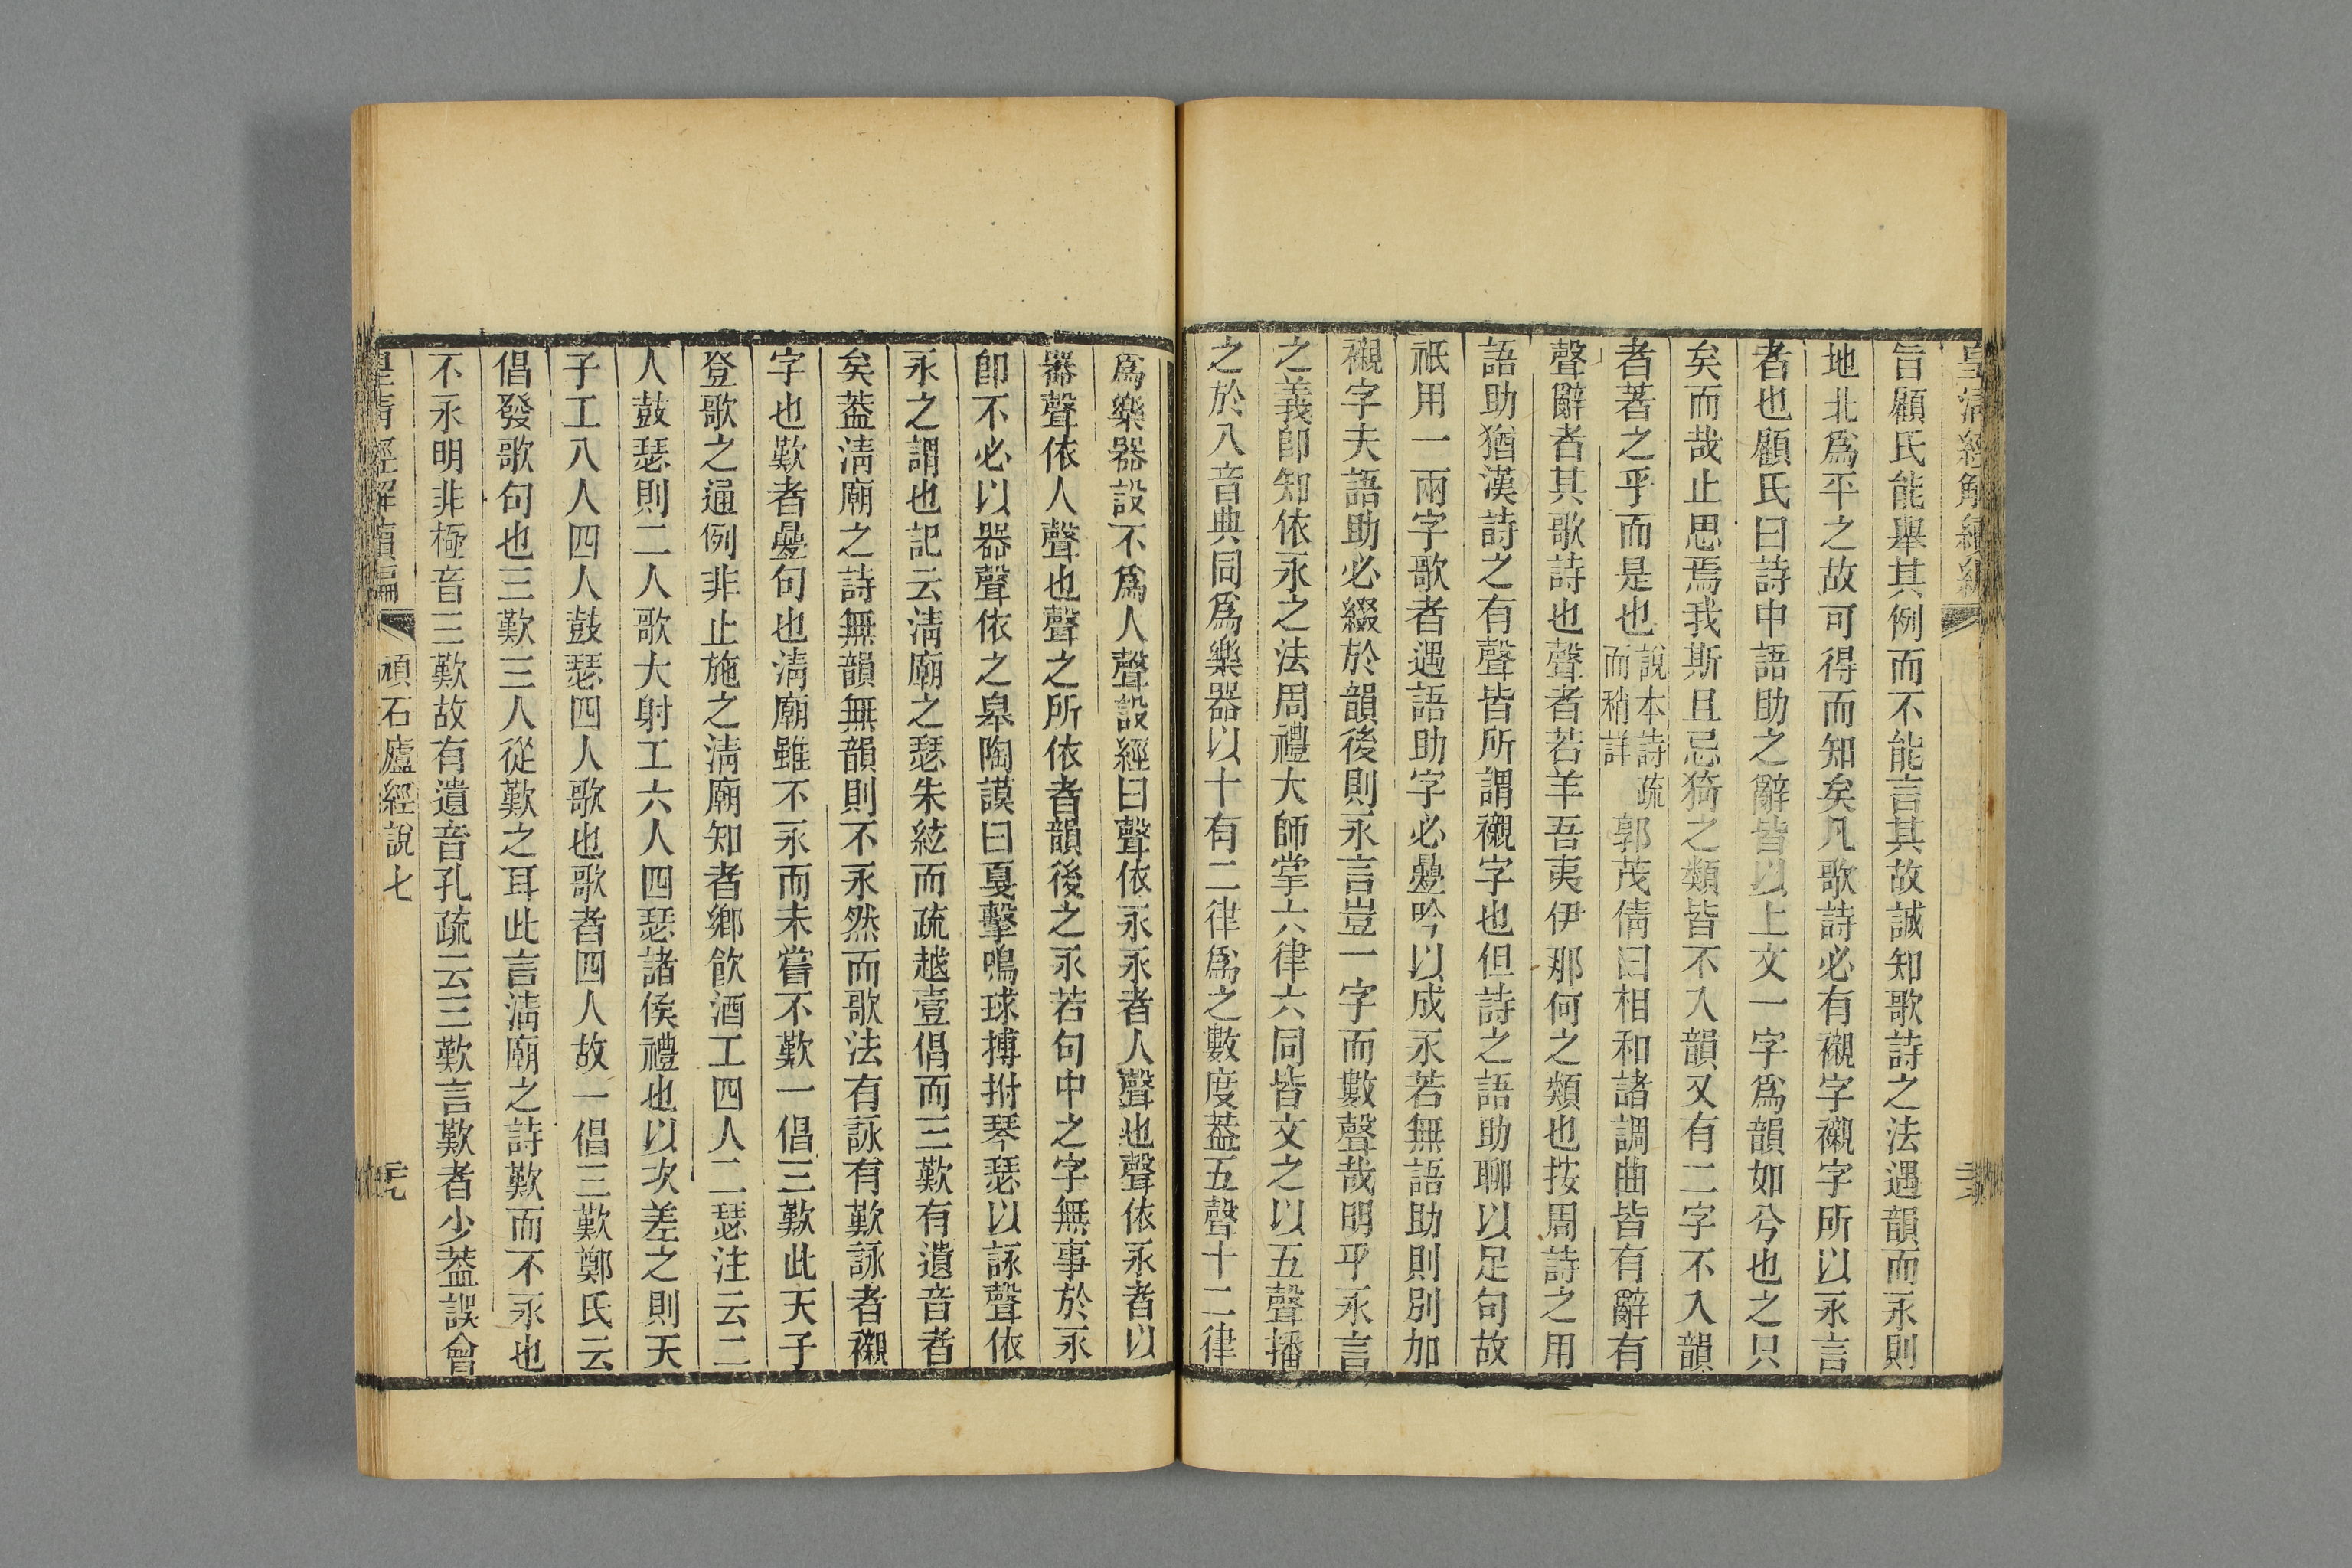 皇清經解續編
旨顧氏能舉其例而不能言其故誠知歌詩之法遇韻而永則
地北爲平之故可得而知矣凡歌詩必有襯字襯字所以永言
者也顧氏曰詩中語助之辭皆以上文一字爲韻如兮也之只
矣而哉止思焉我斯且忌猗之類皆不入韻又有二字不入韻
者著之乎而是也說本詩疏而稍詳郭茂倩曰相和諸調曲皆有辭有
聲辭者其歌詩也聲者若羊吾夷伊那何之類也按周詩之用
語助猶漢詩之有聲皆所謂襯字也但詩之語助聊以足句故
祇用一兩字歌者遇語助字必曡吟以成永若無語助則別加
襯字夫語助必綴於韻後則永言豈一字而數聲哉明乎永言
之義卽知依永之法周禮大師掌六律六同皆文之以五聲播
之於八音典同爲樂器以十有二律爲之數度葢五聲十二律
爲樂器設不爲人聲設經曰聲依永永者人聲也聲依永者以
器聲依人聲也聲之所依者韻後之永若句中之字無事於永
卽不必以器聲依之皋陶謨曰戛擊鳴球搏拊琴瑟以詠聲依
永之謂也記云淸廟之瑟朱絃而疏越壹倡而三歎有遺音者
矣葢淸廟之詩無韻無韻則不永然而歌法有詠有歎詠者襯
字也歎者曡句也淸廟雖不永而未嘗不歎一倡三歎此天子
登歌之通例非止施之淸廟知者鄉飮酒工四人二瑟注云二
人鼓瑟則二人歌大射工六人四瑟諸侯禮也以次差之則天
子工八人四人鼓瑟四人歌也歌者四人故一倡三歎鄭氏云
倡發歌句也三歎三人從歎之耳此言淸廟之詩歎而不永也
不永明非極音三歎故有遺音孔疏云三歎言歎者少葢誤會
皇清經解續編 頑石廬經說七